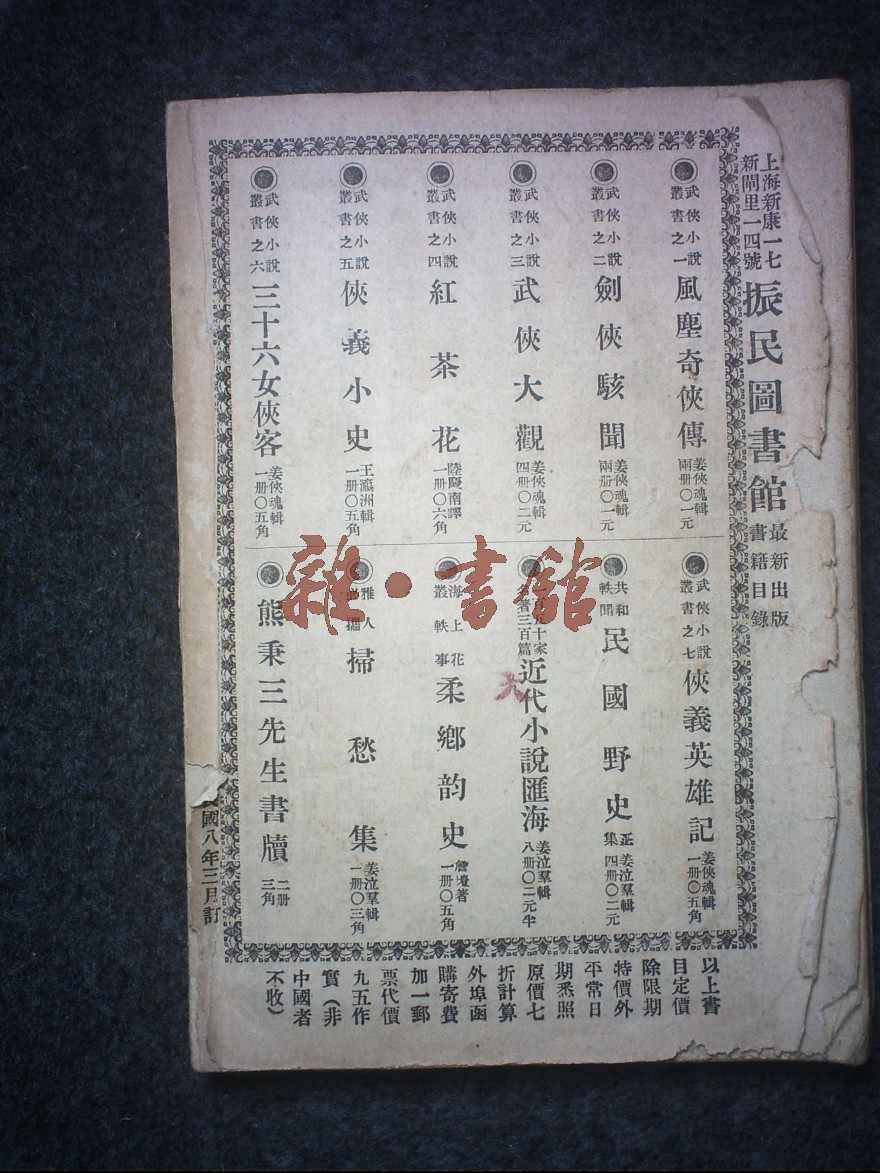 上海新康一七
新閘里一四號
振民圖書館
最新出版
書籍目錄
武俠小說
叢書之一
風塵奇俠傳
姜俠魂輯
兩册〇一元
武俠小說
叢書之二
劍俠駭聞
姜俠魂輯
兩册〇一元
武俠小說
叢書之三
武俠大觀
姜俠魂輯
四册〇二元
武俠小說
叢書之四
紅茶花
陸陔南譯
一册〇六角
武俠小說
叢書之五
俠義小史
王瀛洲輯
一册〇五角
武俠小說
叢書之六
三十六女俠客
姜俠魂輯
一册〇五角
武俠小說
叢書之七
俠義英雄記
姜俠魂輯
一册〇五角
共和
軼聞
民國野史
正集
姜泣羣輯
四册〇二元
十家
著三百篇
近代小說匯海
姜泣羣輯
八册〇二元半
海上花
叢軼事
柔鄉韵史
詹塏著
一册〇五角
雅人
必攜
掃愁集
姜泣羣輯
一册〇三角
熊秉三先生書牘
二册
三角
以上書
目定價
除限期
特價外
平常日
期悉照
原價七
折計算
外埠函
購寄費
加一郵
票代價
九五作
實（非
中國者
不收）
國八年三月訂
雜·書館